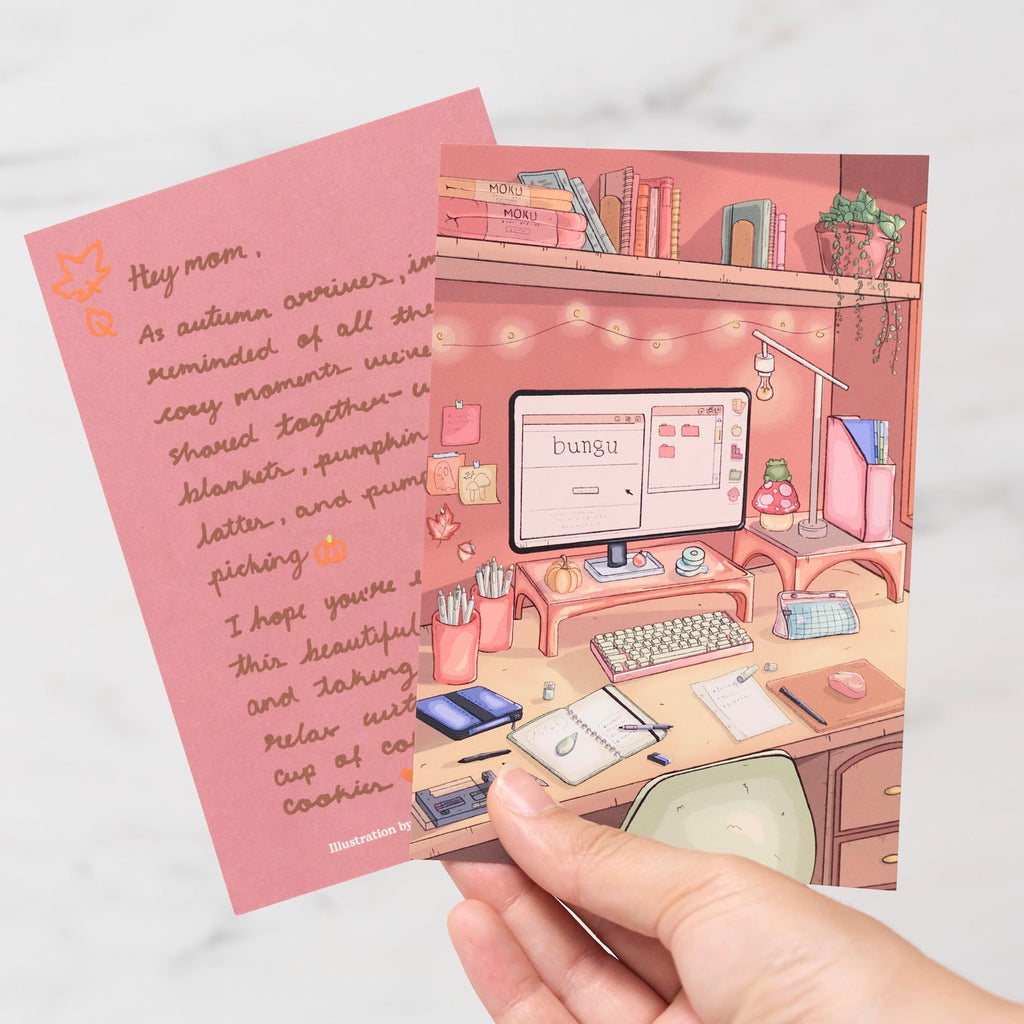 Hey mom,
As autumn arrives,
reminded of all
cozy moments we've
shared together-
blankets, pumpkin
latter, and
picking
I hope you're
this beautiful
and taking
relax
cup of
cookies
Illustration by
MOKU
MOKU
bungu